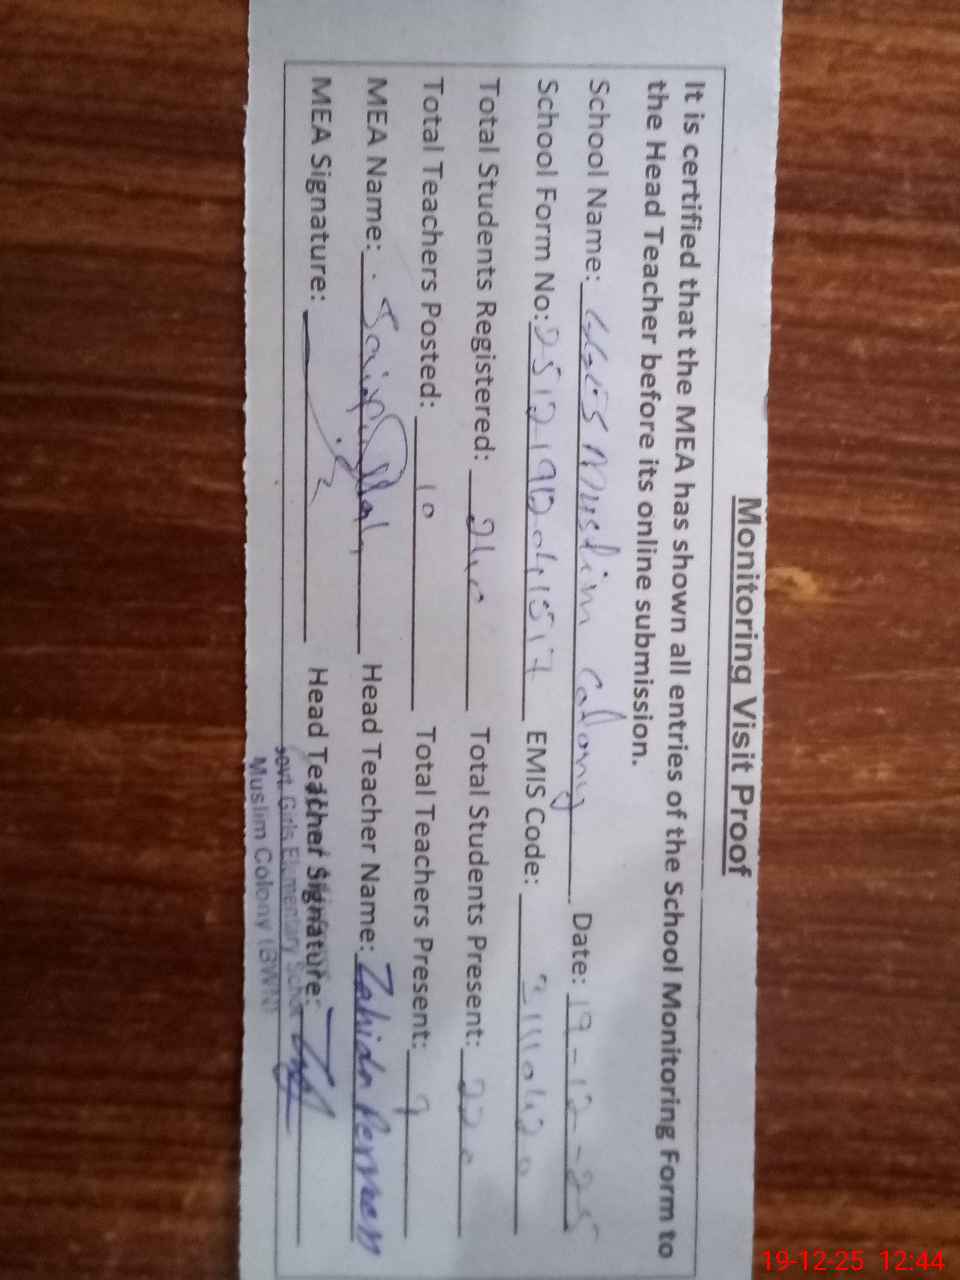 Monitoring Visit Proof
It is certified that the MEA has shown all entries of the School Monitoring Form to
the Head Teacher before its online submission.
School Name: GGES Muslim Colony Date: 19-12-25
School Form No: EMIS Code:
Total Students Registered: Total Students Present: 220
Total Teachers Posted: 10 Total Teachers Present: 9
MEA Name: Saif Ullah Head Teacher Name: Zahida Perveen
MEA Signature: Head Teacher Signature:
Govt. Girls Elementary School
Muslim Colony (BWN)
19-12-25 12:44